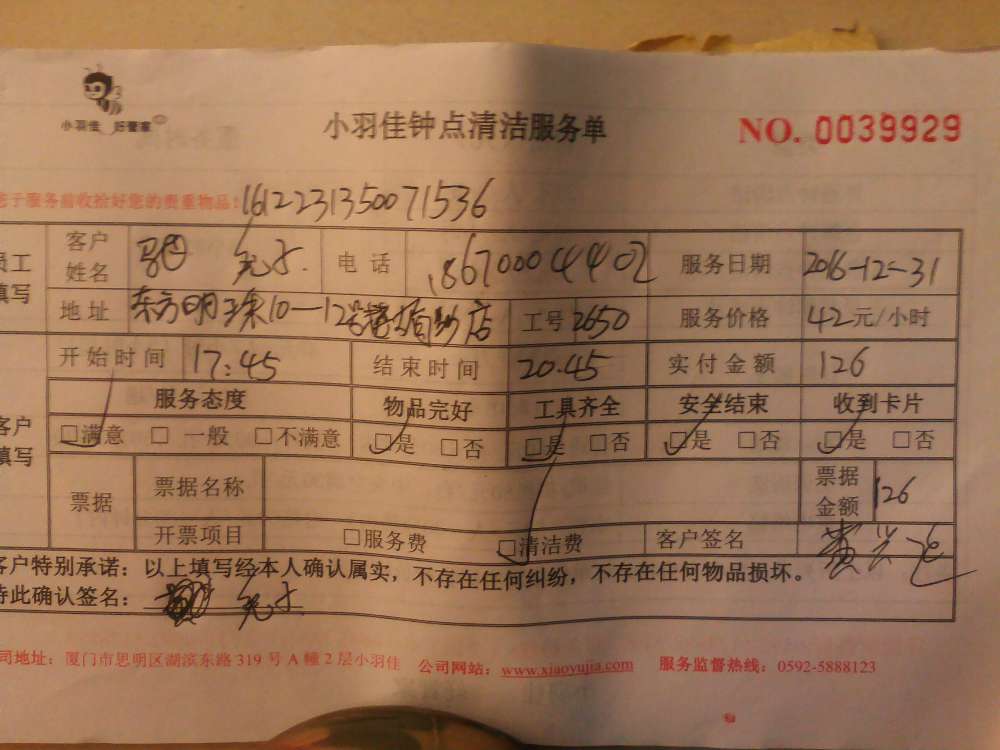 小羽佳 好管家
小羽佳钟点清洁服务单
NO. 0039929
子服务前收拾好您的贵重物品! 161223135007 1536
员工填写
客户姓名 电话 服务日期 2016-12-31
地址 东方明珠10-12号 店 工号 2650 服务价格 42元/小时
开始时间 17:45 结束时间 20.45 实付金额 126
客户填写
服务态度 物品完好 工具齐全 安全结束 收到卡片
□满意 □一般 □不满意 □是 □否 □是 □否 □是 □否 □是 □否
票据 票据名称 票据金额 126
开票项目 □服务费 □清洁费 客户签名
客户特别承诺：以上填写经本人确认属实，不存在任何纠纷，不存在任何物品损坏。
特此确认签名：
司地址：厦门市思明区湖滨东路319号A幢2层小羽佳 公司网站：www.xiaoyujia.com 服务监督热线：0592-5888123